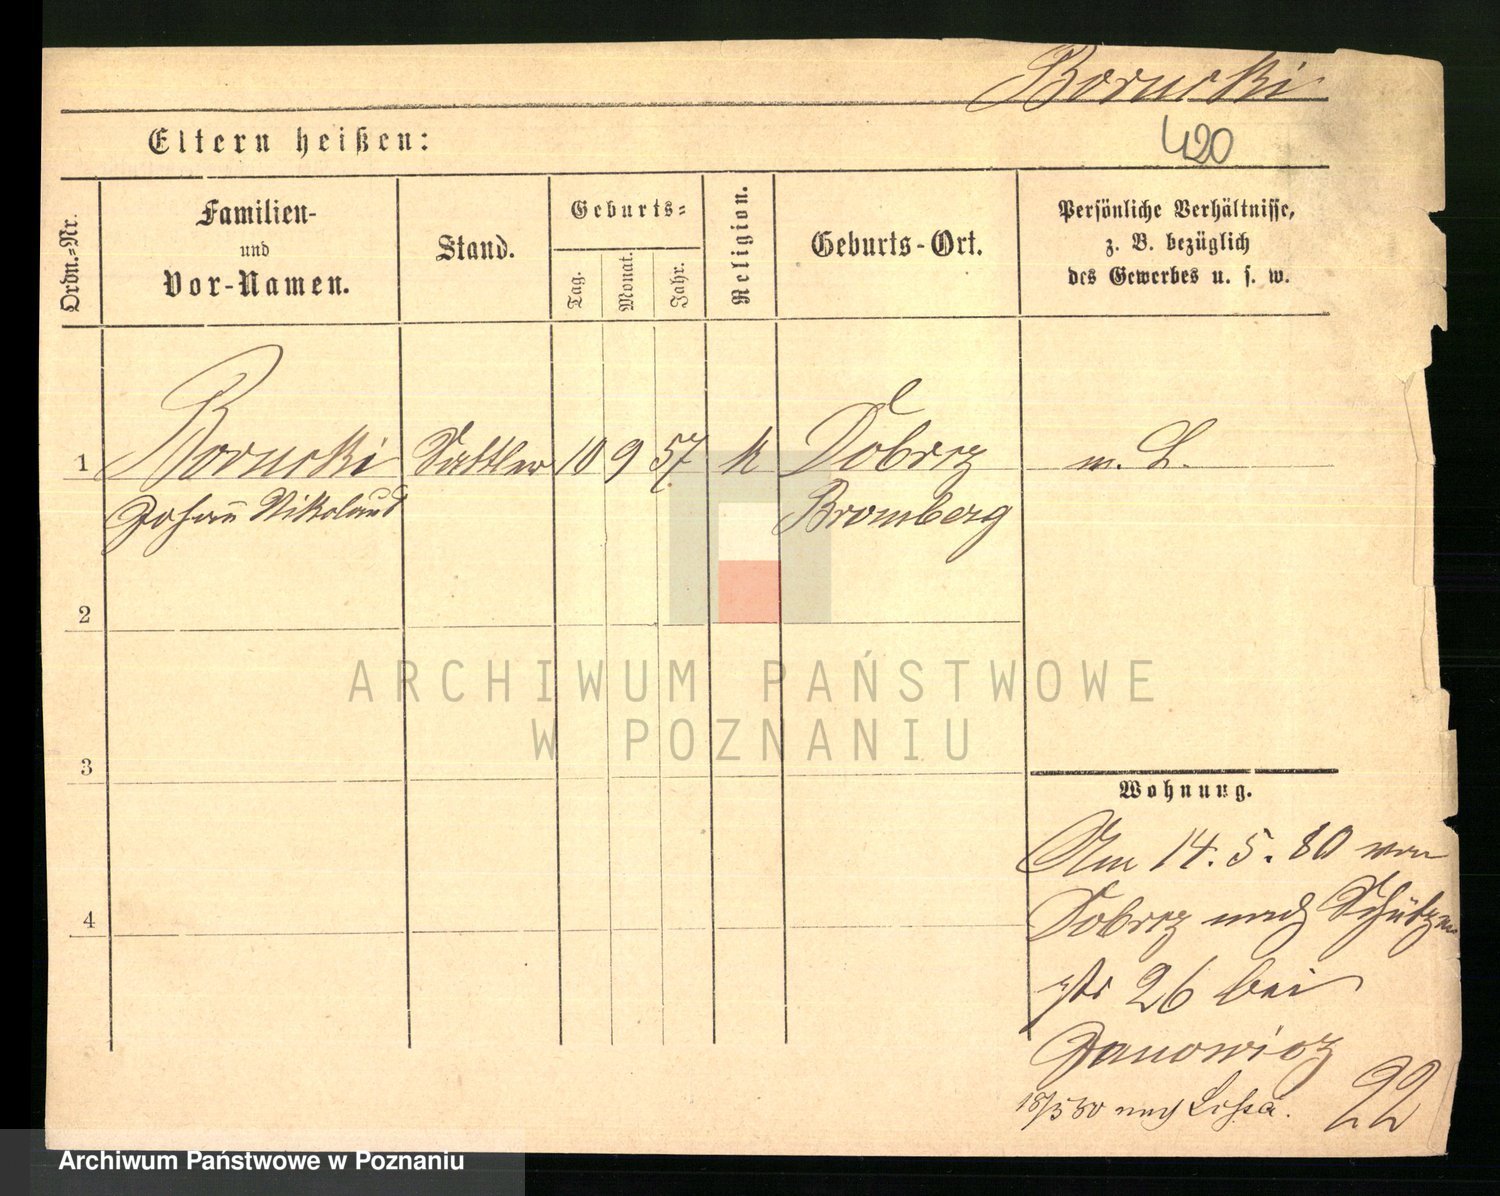 Borucki
420
Eltern heißen:
Ordn.-Nr.
Familien-
und
Vor-Namen.
Stand.
Geburts-
Tag.
Monat.
Jahr.
Religion.
Geburts-Ort.
Persönliche Verhältnisse,
z. B. bezüglich
des Gewerbes u. s. w.
1 Borucki Sattler 10 9 57 k Dobrcz m. L.
Johann Nikolaus Bromberg
2
3
4
Wohnung.
Am 14. 5. 80 von
Dobrcz nach Schützen
str 26 bei
Janowicz
18/5 80 nach Lissa.
22
ARCHIWUM PAŃSTWOWE
W POZNANIU
Archiwum Państwowe w Poznaniu